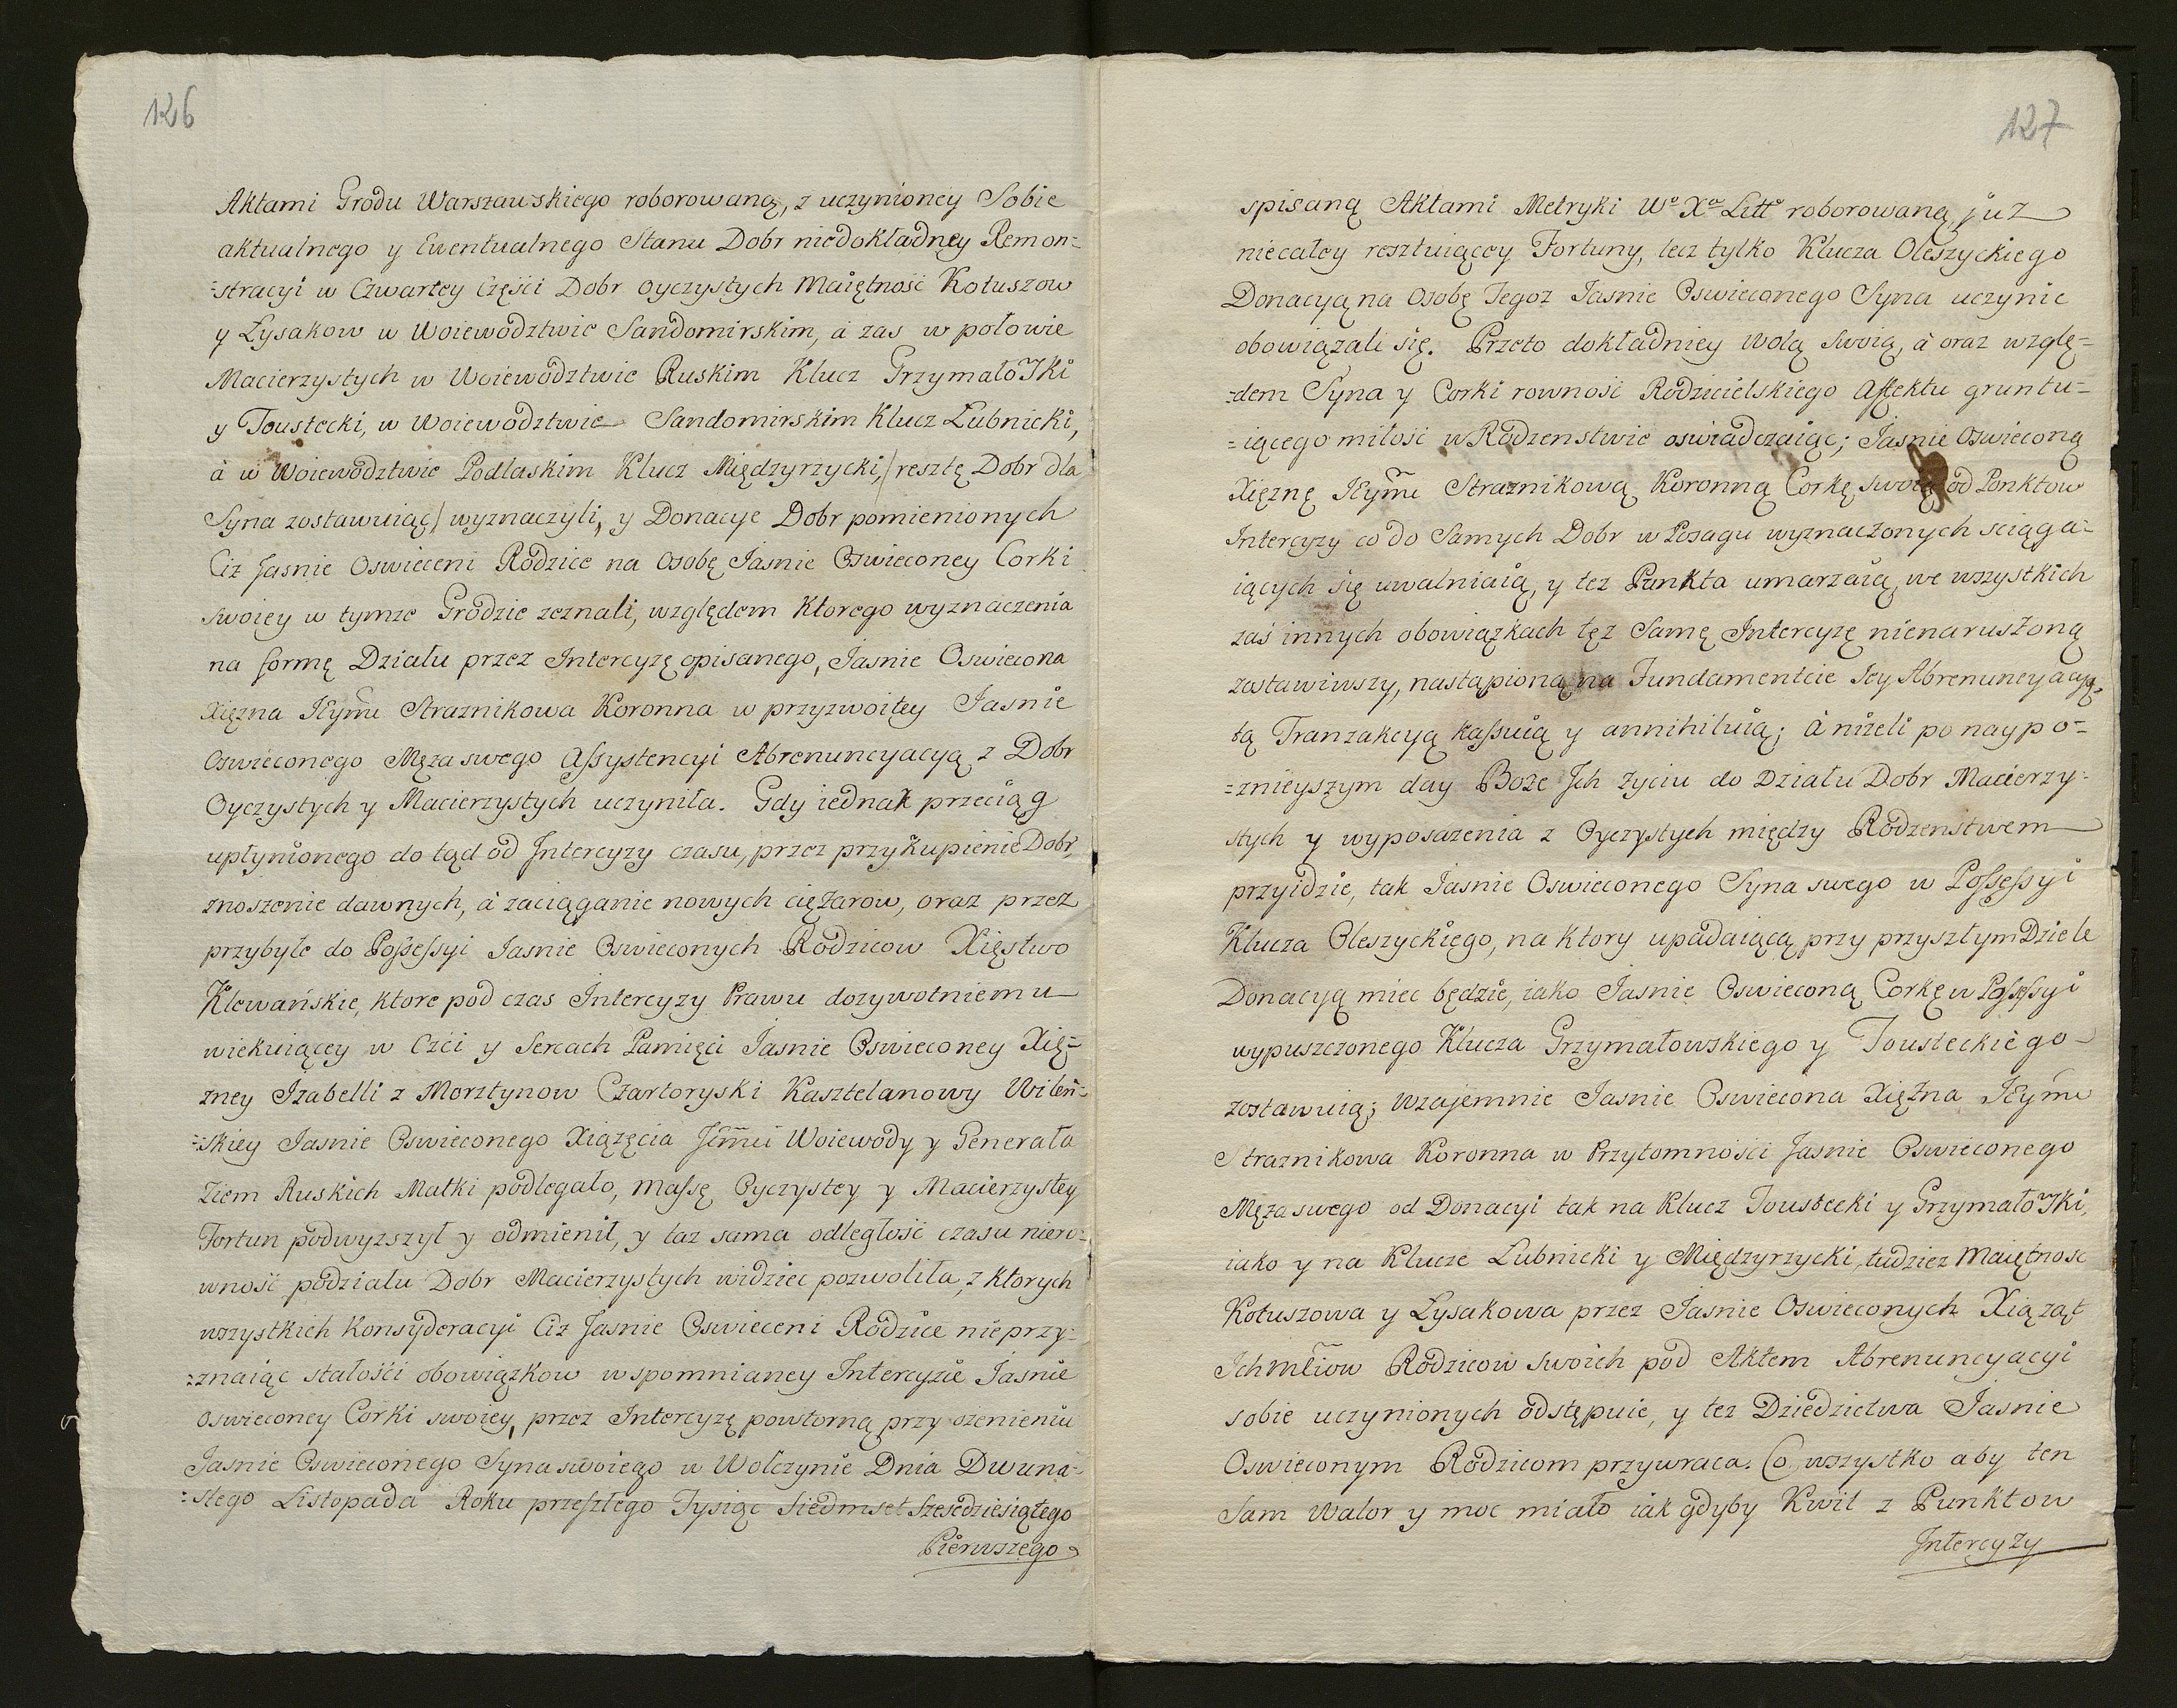 126
Aktami Grodu Warszawskiego roborowaną, z uczynioney Sobie
aktualnego y Ewentualnego Stanu Dobr niedokładney Remon=
=stracyi w Czwartey Części Dobr oyczystych Maiętność Kotuszow
y Łysakow w Woiewodztwie Sandomirskim, à zas w połowie
Macierzystych w Woiewodztwie Ruskim Klucz Grzymałoski
y Toustecki, w Woiewodztwie Sandomirskim Klucz Łubnicki,
à w Woiewodztwie Podlaskim Klucz Międzyrzycki, /resztę Dobr dla
Syna zostawuiąc/ wyznaczyli, y Donacye Dobr pomienionych
Ciz Jasnie Oswieceni Rodzice na Osobę Jasnie Oswieconey Corki
swoiey w tymze Grodzie zeznali, względem ktorego wyznaczenia
na formę Działu przez Intercyzę opisanego, Jasnie Oswiecona
Xięzna JEymć Straznikowa Koronna w przyzwoitey Jasnie
Oswieconego Męza swego Assystencyi Abrenuncyacyą z Dobr
Oyczystych y Macierzystych uczyniła. Gdy iednak przeciąg
upłynionego do tąd od Intercyzy czasu, przez przykupienie Dobr,
znoszenie dawnych, à zaciąganie nowych ciężarow, oraz przez
przybyłe do Possessyi Jasnie Oswieconych Rodzicow Xięstwo
Klewańskie, ktore pod czas Intercyzy Prawu dozywotniemu
wiekuiącey w Czci y Sercach Pamięci Jasnie Oswieconey Xię=
zney Izabelli z Morztynow Czartoryski Kasztelanowy Wileń=
=skiey Jasnie Oswieconego Xiązęcia Jmci Woiewody y Generała
Ziem Ruskich Matki podlegało, massę Oyczystey y Macierzystey
Fortun podwyzszył y odmienił, y taz sama odległość czasu niero=
wność podziału Dobr Macierzystych widziec pozwoliła, z ktorych
wszystkich Konsyderacyi Ciz Jasnie Oswieceni Rodzice nieprzy=
=znaiąc stałości obowiązkow wspomnianey Intercyzie Jasnie
Oswieconey Corki swoiey, przez Intercyzę powtorną przy ozenieniu
Jasnie Oswieconego Syna swoiego w Wołczynie Dnia Dwuna=
=stego Listopada Roku przeszłego Tysiąc Siedmset Szescdziesiątego
Pierwszego
127
spisaną Aktami Metryki Wo Xa Litto roborowaną, juz
niecałey resztuiącey Fortuny, lecz tylko Klucza Oleszyckiego
Donacyą na Osobę Tegoz Jasnie Oswieconego Syna uczynic
obowiązali się. Przeto dokładniey Wolą Swoią, à oraz wzglę=
=dem Syna y Corki rownośc Rodzicielskiego Affektu gruntu=
=iącego miłość w Rodzenstwie oswiadczaiąc; Jasnie Oswieconą
Xięznę JEymć Straznikową Koronną Corkę swoią od Ponktow
Intercyzy co do Samych Dobr w Posagu wyznaczonych sciąga=
iących się uwalniaią, y tez Punkta umarzaią, we wszystkich
zaś innych obowiązkach tęz Samę Intercyzę nienaruszoną
zostawiwszy, nastąpioną na Fundamentcie Jey Abrenuncyacyą,
tą Tranzakcyą kassuią y annihiluią; à nizeli po naypo=
=znieyszym day Boże Jch życiu do Działu Dobr Macierzy=
stych y wyposazenia z Oyczystych między Rodzenstwem
przyidzie, tak Jasnie Oswieconego Syna swego w Possessyi
Klucza Oleszyckiego, na ktory upadaiącą przy przyszłym Dziele
Donacyą miec będzie, iako Jasnie Oswieconą Corkę w Possessyi
wypuszczonego Klucza Grzymałowskiego y Tousteckiego
zostawuią; Wzajemnie Jasnie Oswiecona Xiężna JEymć
Straznikowa Koronna w Przytomności Jasnie Oswieconego
Męza swego od Donacyi tak na Klucz Toustecki y Grzymałoski,
iako y na Klucze Łubnicki y Międzyrzycki, tudziez Maiętnosc
Kotuszowa y Łysakowa przez Jasnie Oswieconych Xiąząt
Ichmciow Rodzicow swoich pod Aktem Abrenuncyacyi
sobie uczynionych odstępuie, y tez Dziedzictwa Jasnie
Oswieconym Rodzicom przywraca. Co wszystko aby ten
Sam Walor y moc miało iak gdyby Kwit z Punktow
Intercyzy